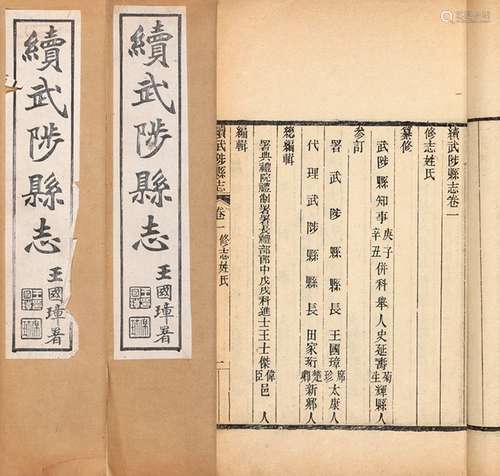 續武陟縣志
王國璋署
續武陟縣志
王國璋署
續武陟縣志卷一
修志姓氏
纂修
武陟縣知事庚子辛丑併科舉人史延壽菊生輝縣人
參訂
署武陟縣縣長王國璋席珍太康人
代理武陟縣縣長田家珩楚卿新鄉人
總編輯
署典禮院禮制署署長禮部郎中戊戌科進士王士傑偉臣邑人
編輯
續武陟縣志 卷一 修志姓氏 一